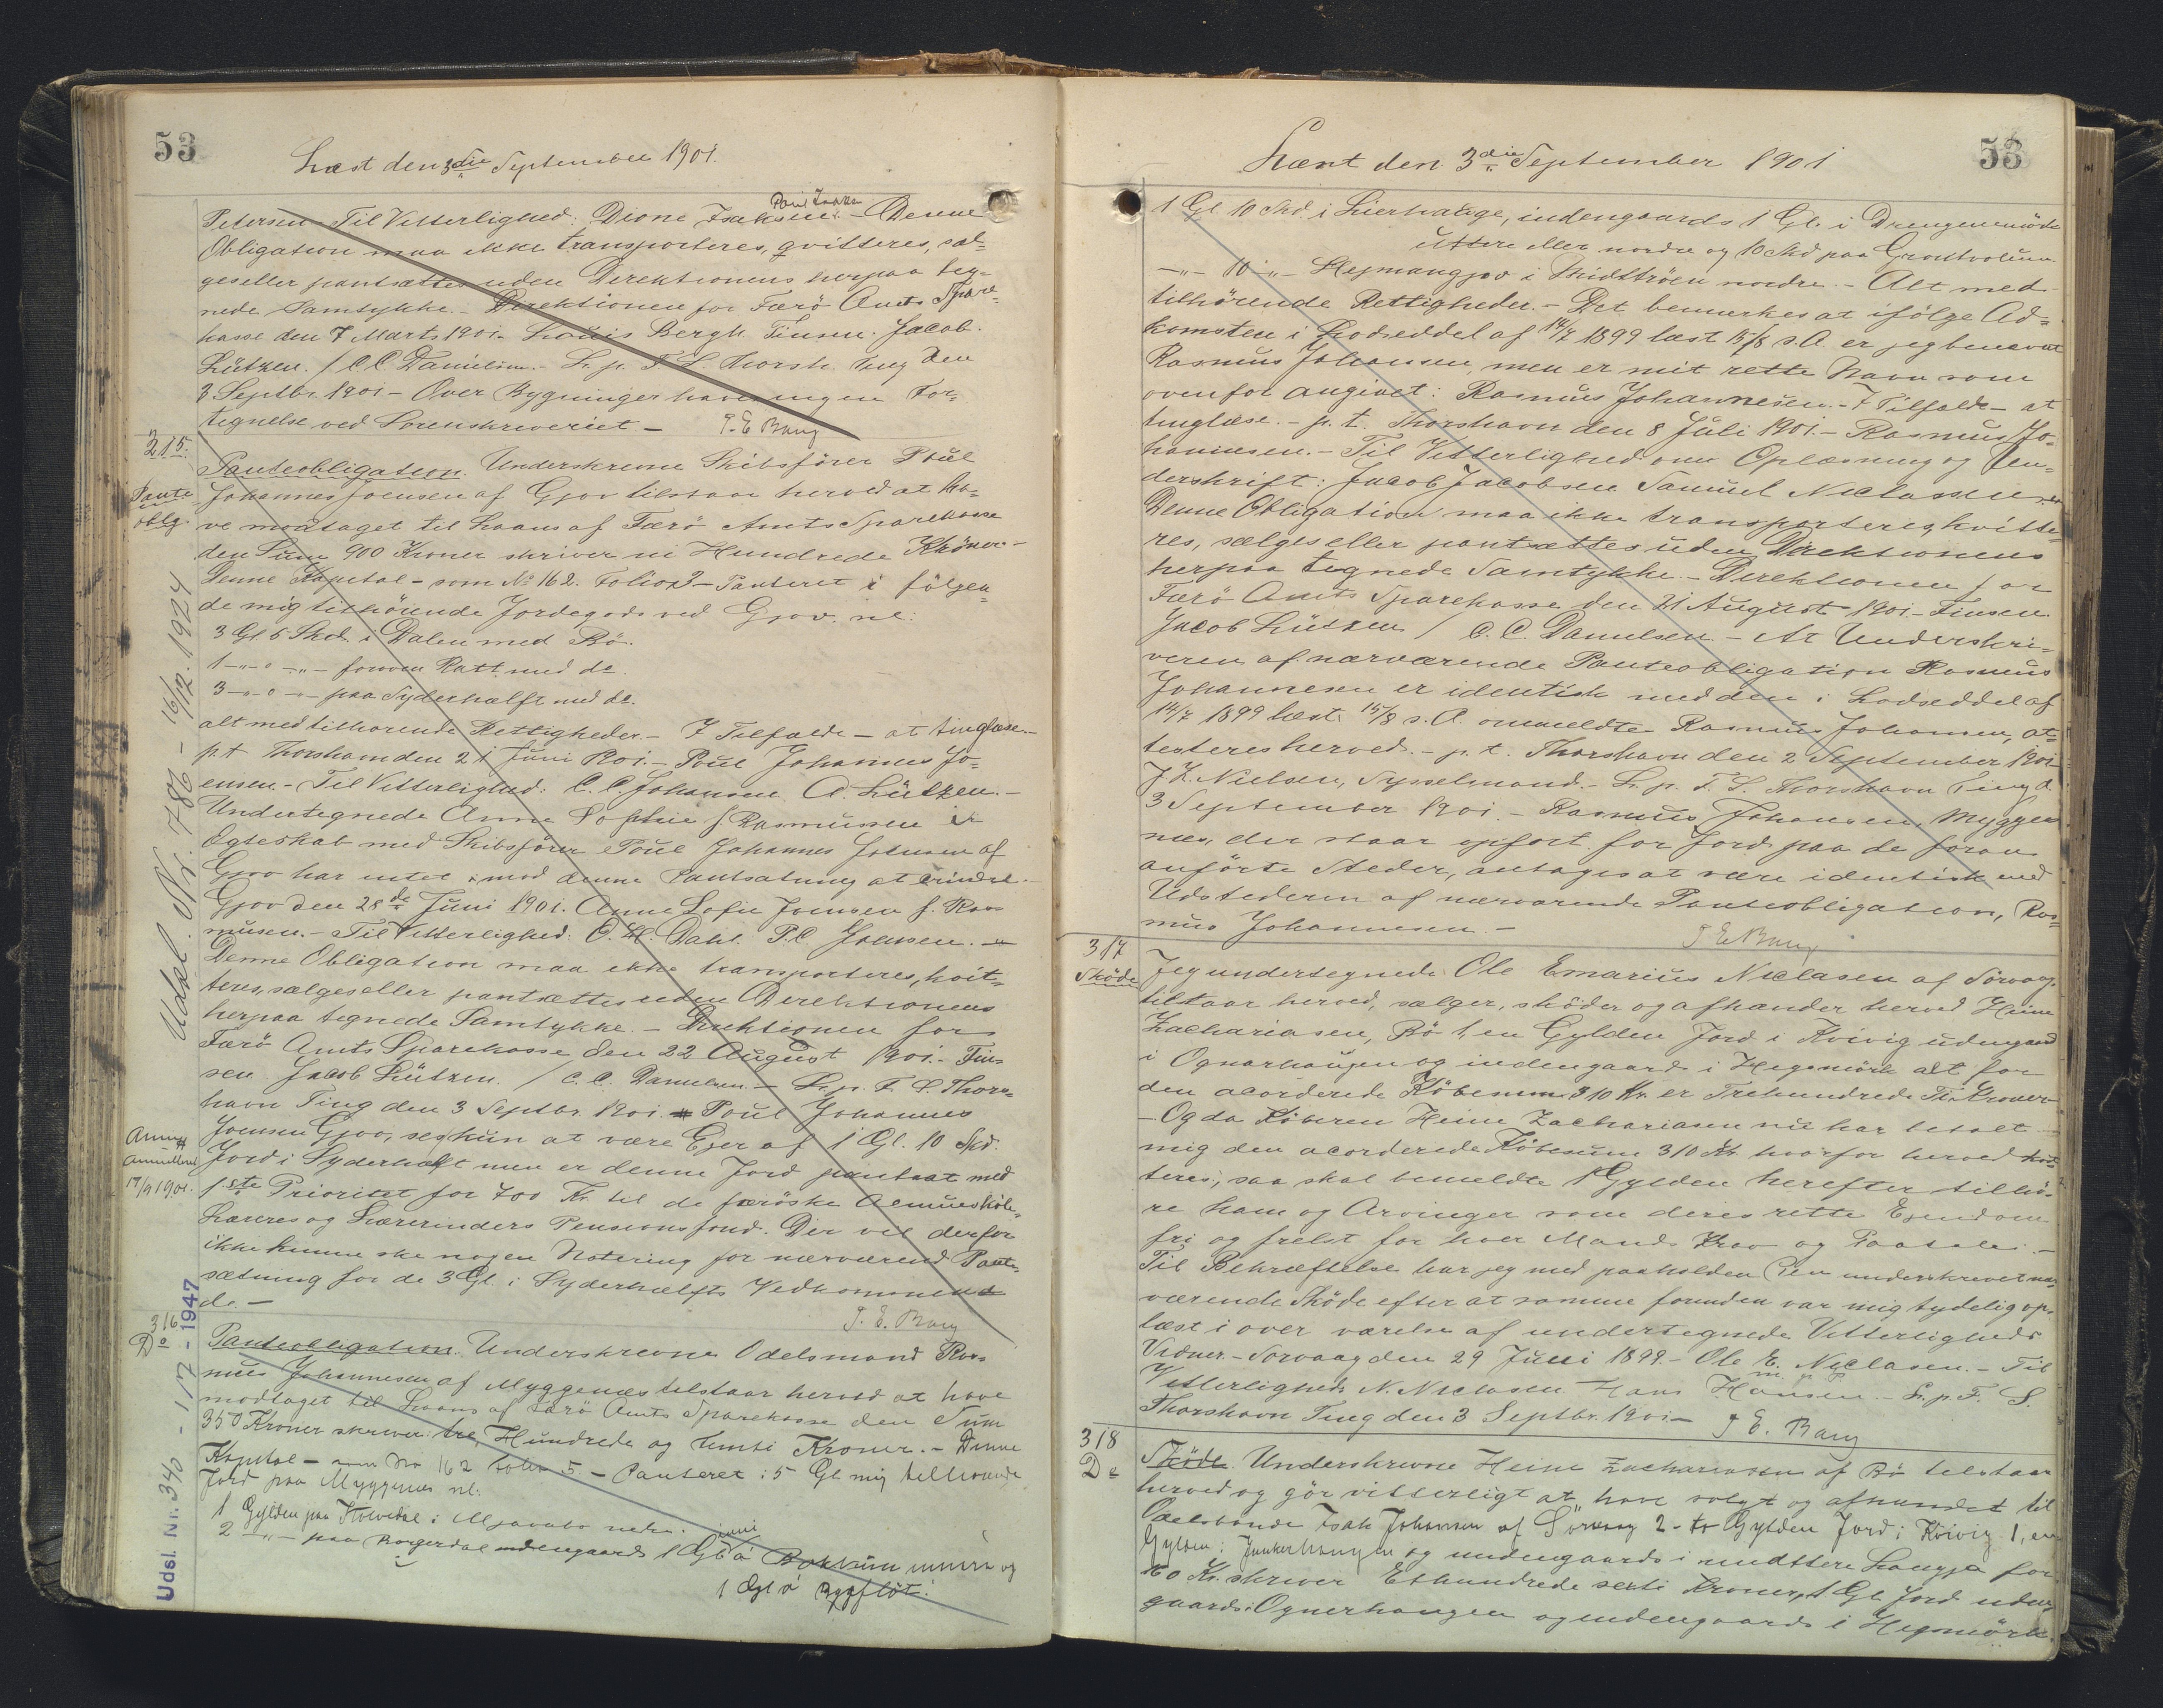 53
Læst den 3die September 1901.
Poul Isaksen
Petersen Til Vitterlighed: Dione Isaksen. - Denne
Obligation maa ikke transporteres, qvitteres, sæl=
ges eller pantsættes uden Direktionens herpaa teg=
nede Samtykke. - Direktionen for Færö Amts Spare=
kasse den 7 Marts 1901. Louis Bergh. Finsen. Jacob
Lützen. / C.C. Danielsen. - Lr. p. F. S. Thorsh. Ting den
3 Septbr. 1901 - Over Bygninger haves ingen For=
tegnelse ved Sorenskriveriet - J. E. Bang
315.
Pante
oblg.
Panteobligation. Underskrevne Skibsförer Poul
Johannes Joensen af Gjov tilstaar herved at ha=
ve modtaget til Laans af Færö Amts Sparekasse
den Sum 900 Kroner skriver ni Hundrede Kroner -
Denne Kapital - som No 162. Folio 3 - Panteret i fölgen=
de mig tilhörende Jordegods ved Gjov. nl:
3 Gl 5 Skd. i Dalen med Bö.
1 -"- 0 -"- forven Ratt med do
3 -"- 0 -"- paa Syderhælft med do.
alt med tilhorende Rettigheder. - 7 Tilfælde - at tinglæse. -
p.t. Thorshavn den 21 Juni 1901. - Poul Johannes Jo=
ensen. - Til Vitterlighed: C. C. Johansen A. Lützen. -
Undertegnede Anne Sofie f. Rasmussen i
Egteskab med Skibsförer Poul Johannes Joensen af
Gjov har intet imod denne Pantsætning at erindre. -
Gjov den 28de Juni 1901. Anne Sofie Joensen f. Ras
mussen. - Til Vitterlighed: O. H. Dahl. P.C. Joensen. -
Denne Obligation maa ikke transporteres, kvit=
teres, sælges eller pantsættes uden Direktionens
herpaa tegnede Samtykke. - Direktionen for
Færö Amts Sparekasse den 22 August 1901. - Fin=
sen Jacob Lützen. / C. C. Danielsen. - Lr. p. F. S. Thors=
havn Ting den 3 Septbr. 1901. # Poul Johannes
Joensen Gjov, ses kun at være Ejer af 1 Gl. 10 Skd.
Anm #
Anmeldt
17/9 1901.
Jord i Syderhælft men er denne Jord pantsat med
1ste Prioritet for 700 Kr. til de færöske Almueskole=
Læreres og Lærerinders Pensionsfond. Der vil derfor
ikke kunne ske nogen Notering for nærværend Pant=
sætning for de 3 Gl. i Syderhælfts Vedkommen
de. - J. E. Bang
Udsl. Nr. 786 - 16/12. 1924
316
Do
Panteobligation. Underskrevne Odelsmand Ras
mus Johannesen af Myggenæs tilstaar herved at have
modtaget til Laans af Færö Amts Sparekasse den Sum
350 Kroner skriver: tre Hundrede og femti Kroner. - Denne
Kapital - som No 162 folio 5. - Panteret i 5 Gl mig tilhörende
Jord paa Myggenæs nl:
1 Gylden paa Holvedal i
2 -"- paa Borgerdal indengaards 1 Gl á og
1 Gl á
Udsl. Nr. 340 - 1/7 - 1947
53
Læst den 3die September 1901
1 Gl 10 Skd. i Lierhauge, indengaards 1 Gl. i Drengenemöde
uttere eller nordre og 10 Skd paa
-"- 10 -"- i Midttröen nordre. - Alt med
tilhörende Rettigheder. - Det bemærkes at ifölge Ad=
komsten i Lodseddel af 14/7 1899 læst 15/8 s. A. er jeg benævnt
Rasmus Johansen, men er mit rette Navn som
ovenfor angivet: Rasmus Johannesen. - 7 Tilfælde - at
tinglæse. - p. t. Thorshavn den 8 Juli 1901. - Rasmus Jo=
hannesen. - Til Vitterlighed om Oplæsning og Un=
derskrift: Jacob Jacobsen Samuel Niclassen
Denne Obligation maa ikke transporteres, kvitte=
res, sælges eller pantsættes uden Direktionens
herpaa tegnede Samtykke. - Direktionen for
Færö Amts Sparekasse den 21 August 1901. - Finsen
Jacob Lützen / C. C. Danielsen - At Underskri=
veren af nærværende Panteobligation Rasmus
Johannesen er identisk med den i Lodseddel af
14/7 1899 læst 15/8 s. A. ommeldte Rasmus Johansen, at=
testeres herved. - p. t. Thorshavn den 2 September 1901.
J. L. Nielsen, Sysselmand. - Lr. p. F. S. Thorshavn Ting d.
3 September 1901. - Rasmus Johansen, Myggen
næs, der staar opfört for Jord paa de foran
anförte Steder, antages at være identisk med
Udstederen af nærværende Panteobligation, Ras=
mus Johannesen. - J. E. Bang
317
Sköde
Jeg undertegnede Ole Emarius Niclasen af Sorvaag
tilstaar herved, sælger, sköder og afhænder herved Heine
Zachariasen, Bö 1, en Gylden Jord i Kvivig udengaard
i Ognarhaugen og indengaard i Hegsmörk alt for
den acorderede Köbesum 310 Kr. er Trehundrede Ti Kroner -
- Og da Köberen Heine Zachariasen nu har betalt
mig den acorderede Köbesum 310 Kr. hvorfor herved kvit=
teres; saa skal bemeldte 1 Gylden herefter tilhö=
re ham og Arvinger som deres rette Ejendom
fri og frelst for hver Mands Krav og Paatale. -
Til Bekræftelse har jeg med paaholden Pen underskrevet nær
værende Sköde efter at samme forinden var mig tydelig op=
læst i over værelse af undertegnede Vitterligheds
Vidner. - Sorvaag den 29 Juni 1899. - Ole E. Niclasen. - Til
m. p. P.
Vitterlighed: N. Niclasen Hans Hansen - Lr. p. F. S.
Thorshavn Ting den 3 Septbr. 1901 - J. E. Bang
318
Do
Sköde. Underskrevne Heine Zachariasen af Bö tilstaar
herved og gör vitterligt at have solgt og afhændet til
Odelsbonde Isak Johansen af Sörvaag 2 - to Gylden Jord i Kvivig 1, en
Gylden i Junkerhaugen og indengaards i midttere Laugja for
160 Kr. skriver Ethundrede sexti Kroner, 1 Gl. Jord uden=
gaards i Ognerhaugen og indengaards i Hegsmörk.